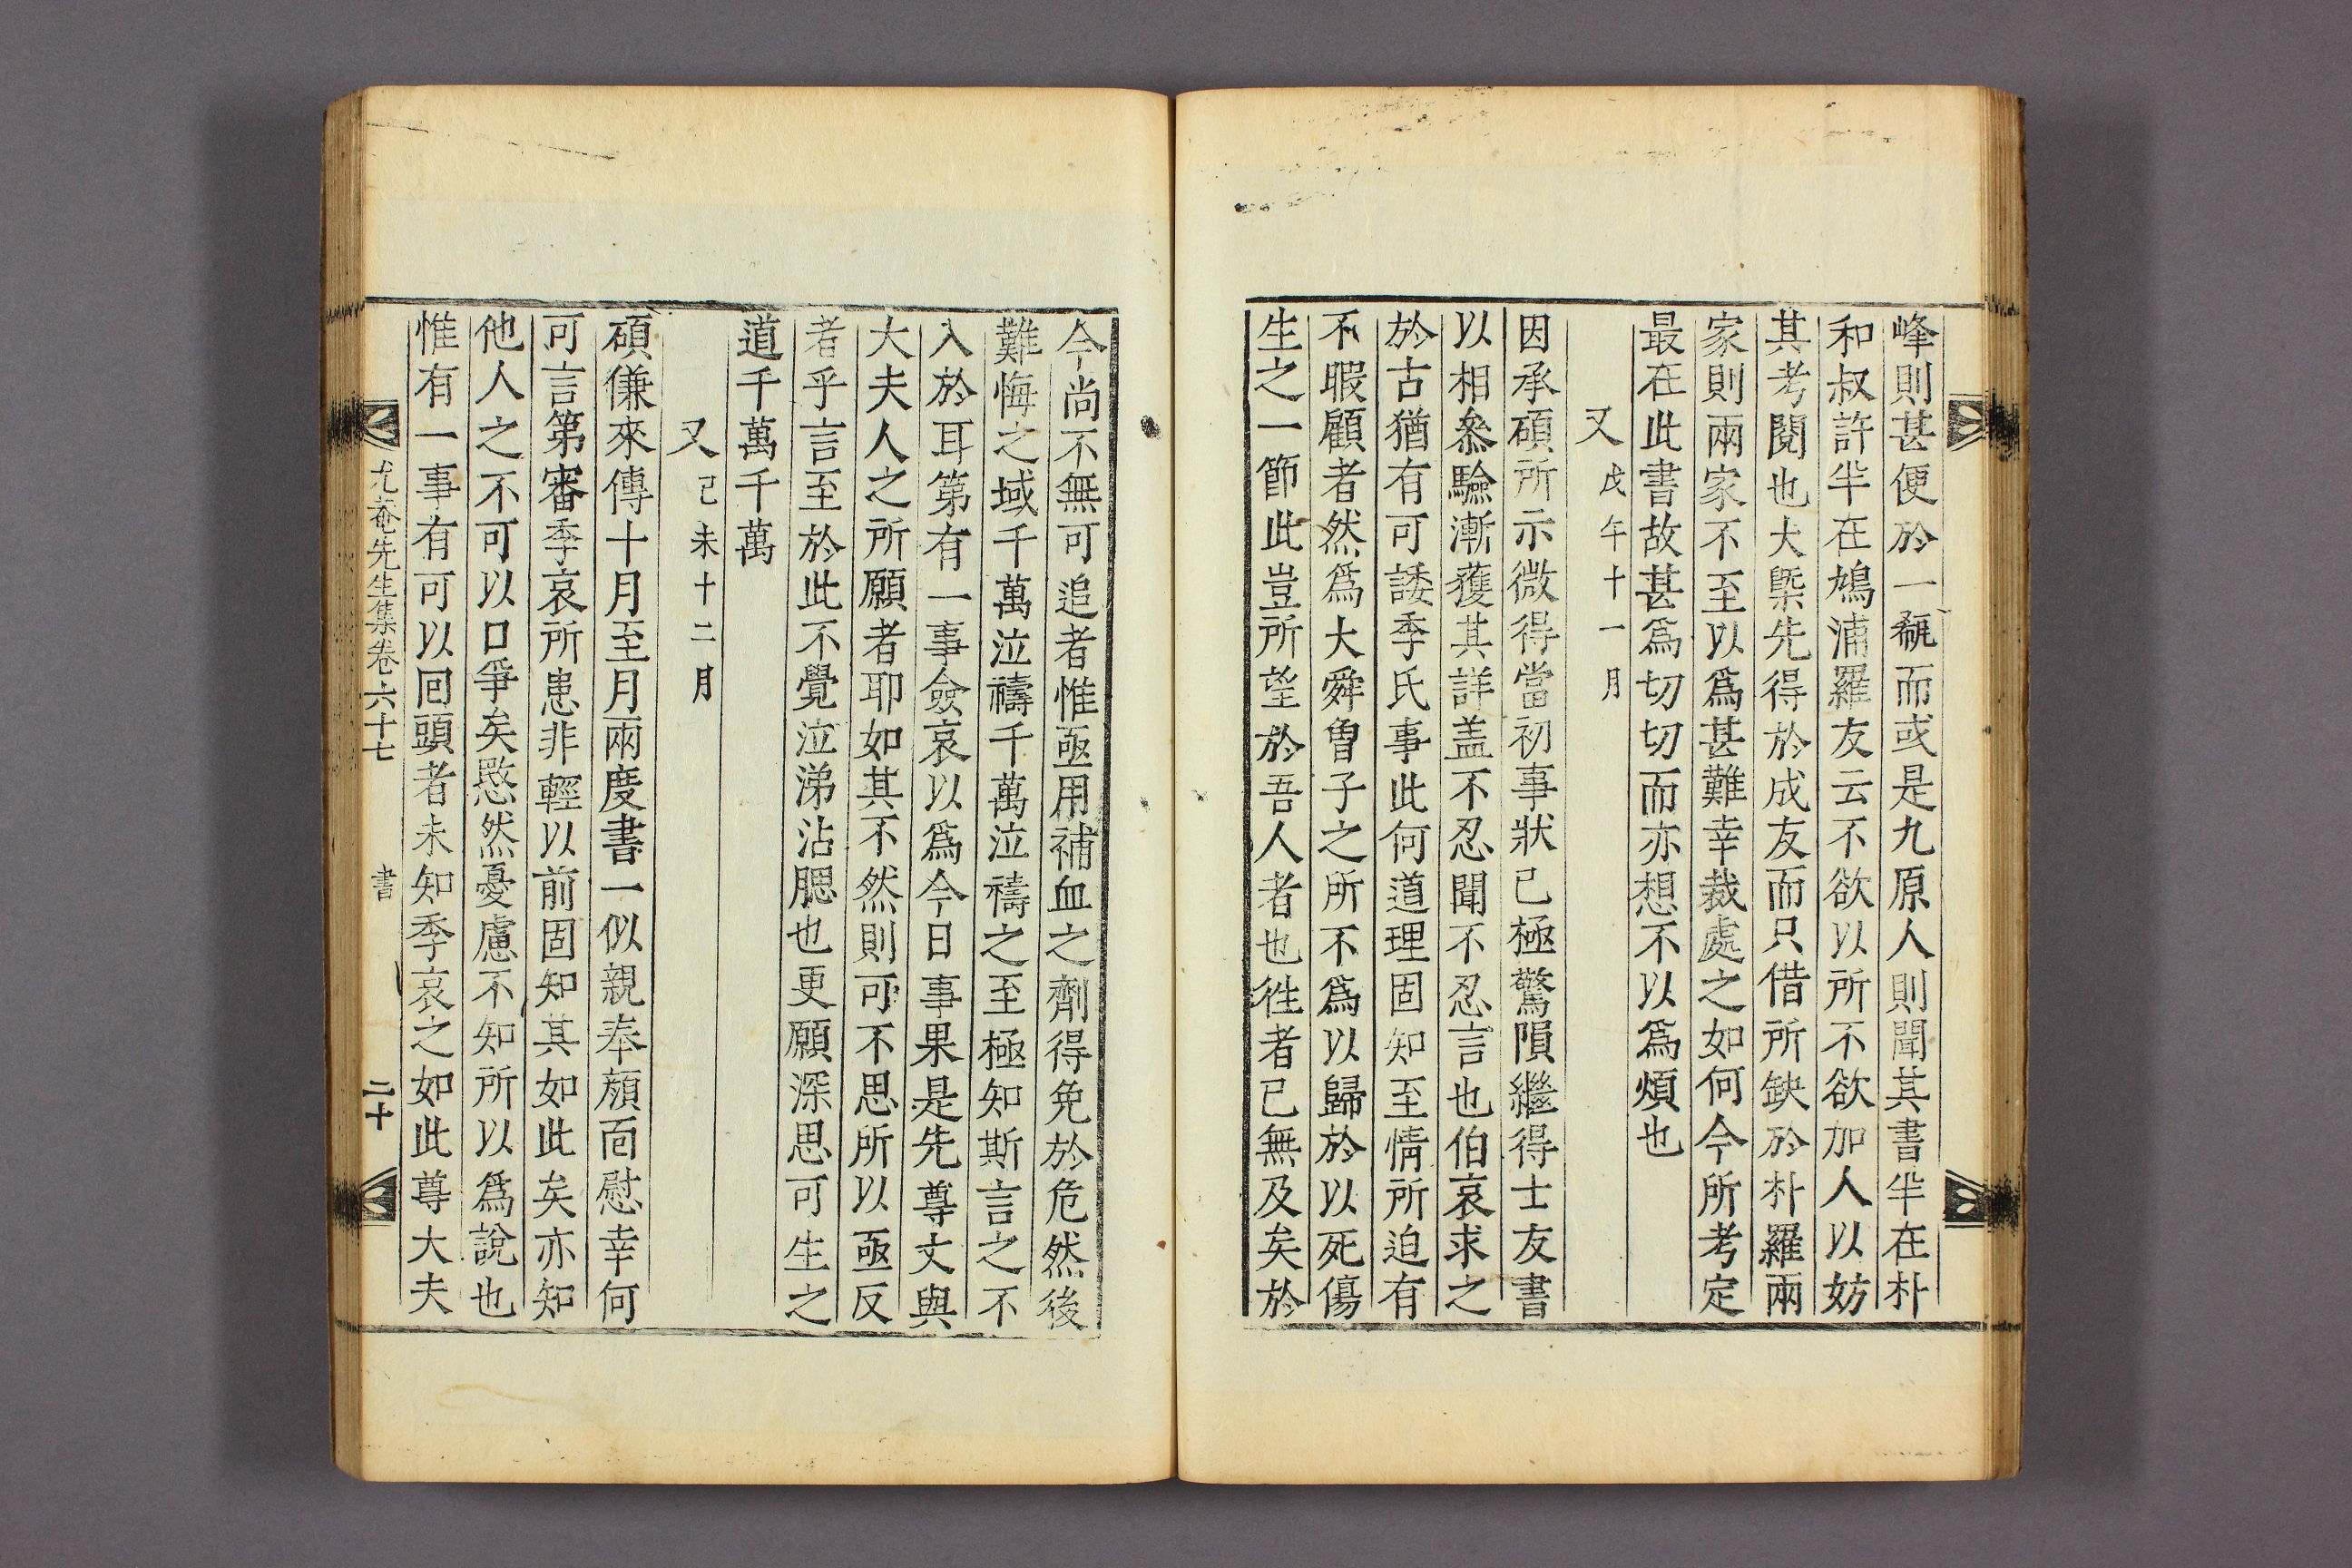 峰則甚便於一覾而或是九原人則聞其書半在朴
和叔許半在鳩浦羅友云不欲以所不欲加人以妨
其考閱也大槩先得於成友而只借所缺於朴羅兩
家則兩家不至以爲甚難幸裁處之如何今所考定
最在此書故甚爲切切而亦想不以爲煩也
又戊午十一月
因承碩所示微得當初事狀已極驚隕繼得士友書
以相叅驗漸獲其詳盖不忍聞不忍言也伯哀求之
於古猶有可諉季氏事此何道理固知至情所迫有
不暇顧者然爲大舜曾子之所不爲以歸於以死傷
生之一節此豈所望於吾人者也徃者已無及矣於
今尚不無可追者惟亟用補血之劑得免於危然後
難悔之域千萬泣禱千萬泣禱之至極知斯言之不
入於耳第有一事僉哀以爲今日事果是先尊丈與
大夫人之所願者耶如其不然則可不思所以亟反
者乎言至於此不覺泣涕沾腮也更願深思可生之
道千萬千萬
又己未十二月
碩傔來傳十月至月兩度書一似親奉顔面慰幸何
可言第審季哀所患非輕以前固知其如此矣亦知
他人之不可以口爭矣愍然憂慮不知所以爲說也
惟有一事有可以回頭者未知季哀之如此尊大夫
尤菴先生集卷六十七 書 二十